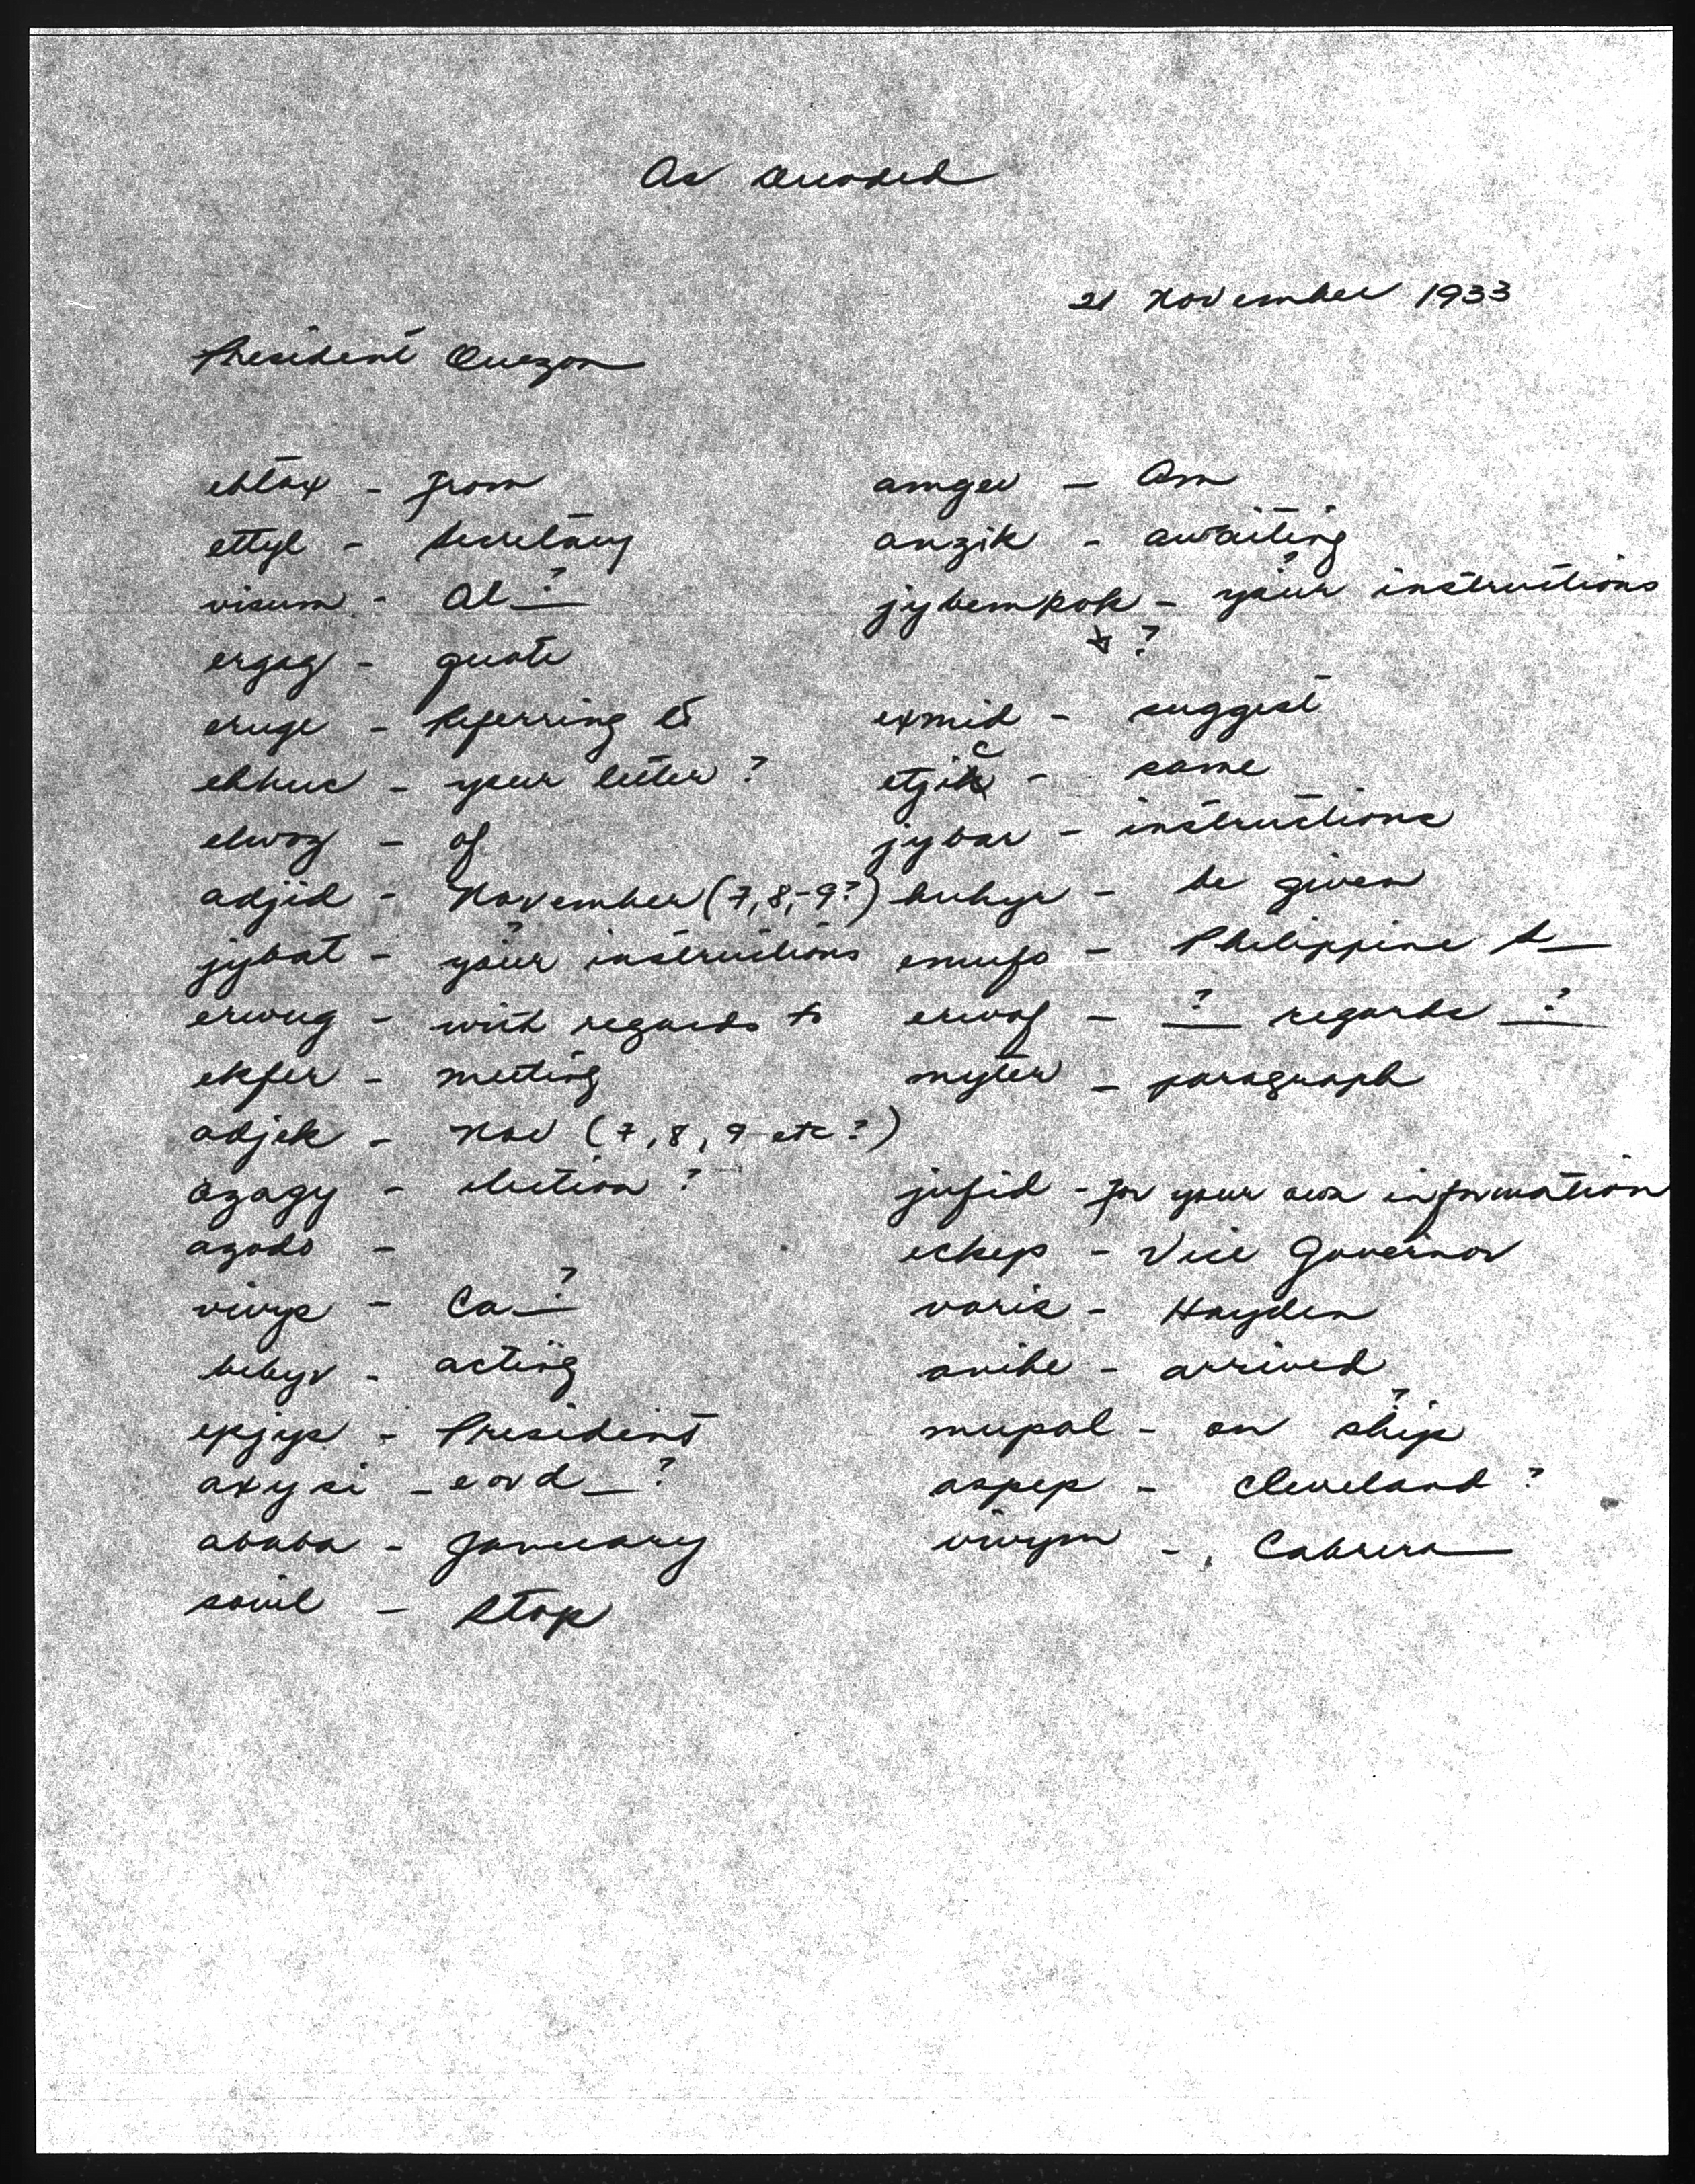 As
21 November 1933
President Quezon
ehtax - from
ettyl - Secretary
visum - Al ?
ergag - quote
eruge - Referring to
ehhuc - your letter ?
elwoz - of
adjid - November (7, 8, - 9?)
jybat - your ? instructions
erwug - with regards to
ekfer - meeting
adjek - Nov (7, 8, 9 etc ?)
azagy - election ?
azodo -
vivyp - Ca ?
bebyv - acting
epjyp - President
axysi - e or d _ ?
ababa - January
sovil - Stop
amgev - Am
anzik - awaiting
jybempok - your ? instructions
?
exmid - suggest
c
etjik - same
jybar - instructions
buhyr - be given
emufo - Philippine S
erwof - ? regards ?
myter - paragraph
jufid - for your own information
eckep - Vice Governor
varis - Hayden
anibe - arrived
mupal - on ship ?
aspep - Cleveland ?
vivym - Cabrera